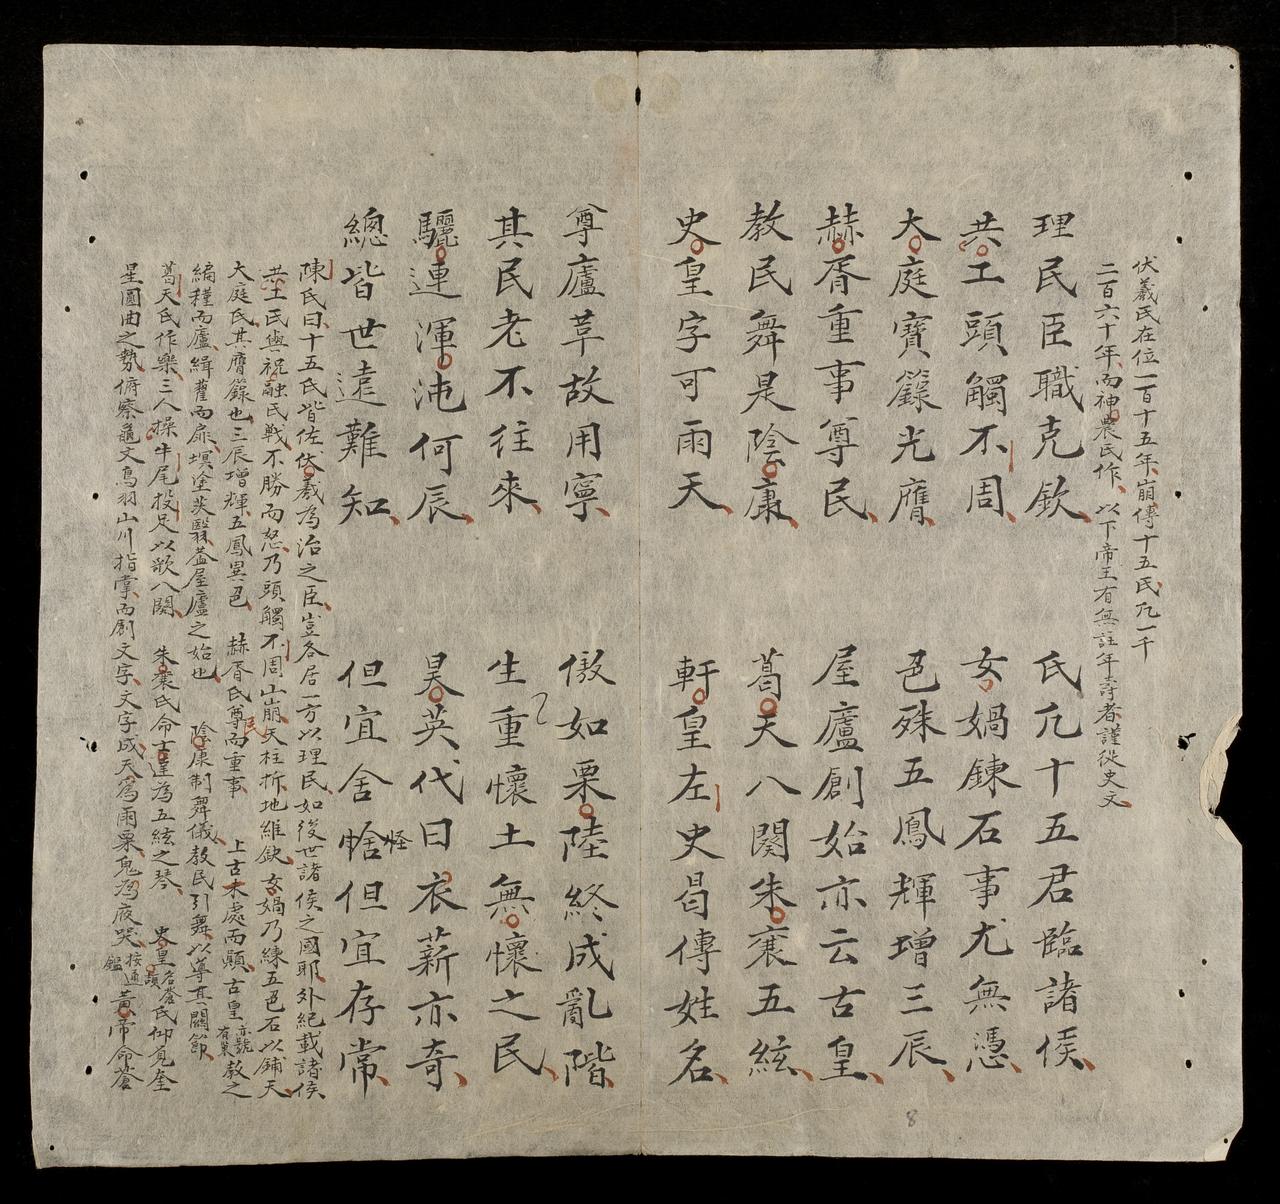 伏羲氏在位一百十五年崩傳十五氏凡一千
二百六十年而神農氏作以下帝王有無註年壽者謹從史文
理民臣職克欽
氏凡十五君臨諸侯
共工頭觸不周
女媧鍊石事尤無憑
大庭寶籙光膺
色殊五鳳輝增三辰
赫胥重事尊民
屋廬創始亦云古皇
教民舞是陰康
葛天八闋朱襄五絃
史皇字可雨天
軒皇左史曷傳姓名
尊廬草故用寧
傲如栗陸終成亂階
其民老不往來
生重懷土無懷之民
驪連渾沌何辰
昊英代曰衣薪亦奇
總皆世遠難知
但宜舍恠但宜存常
怪
陳氏曰十五氏皆佐伏羲為治之臣豈各居一方以理民如後世諸侯之國耶外紀載諸侯
共工氏與祝融氏戰不勝而怒乃頭觸不周山崩天柱折地維缺女媧乃練五色石以鋪天
大庭氏其膺籙也三辰增輝五鳳異色 赫胥氏尊民而重事 上古木處而顛古皇亦號有巢教之
編槿而廬緝藋而扉塓塗茨翳蓋屋廬之始也 陰康制舞儀教民引舞以導其關節
葛天氏作樂三人操牛尾投足以歌八闋 朱襄氏命士達為五絃之琴 史皇名蒼頡氏仰觀奎
星圜曲之勢俯察龜文鳥羽山川指掌而創文字文字成天為雨粟鬼為夜哭按通鑑黃帝命蒼
8